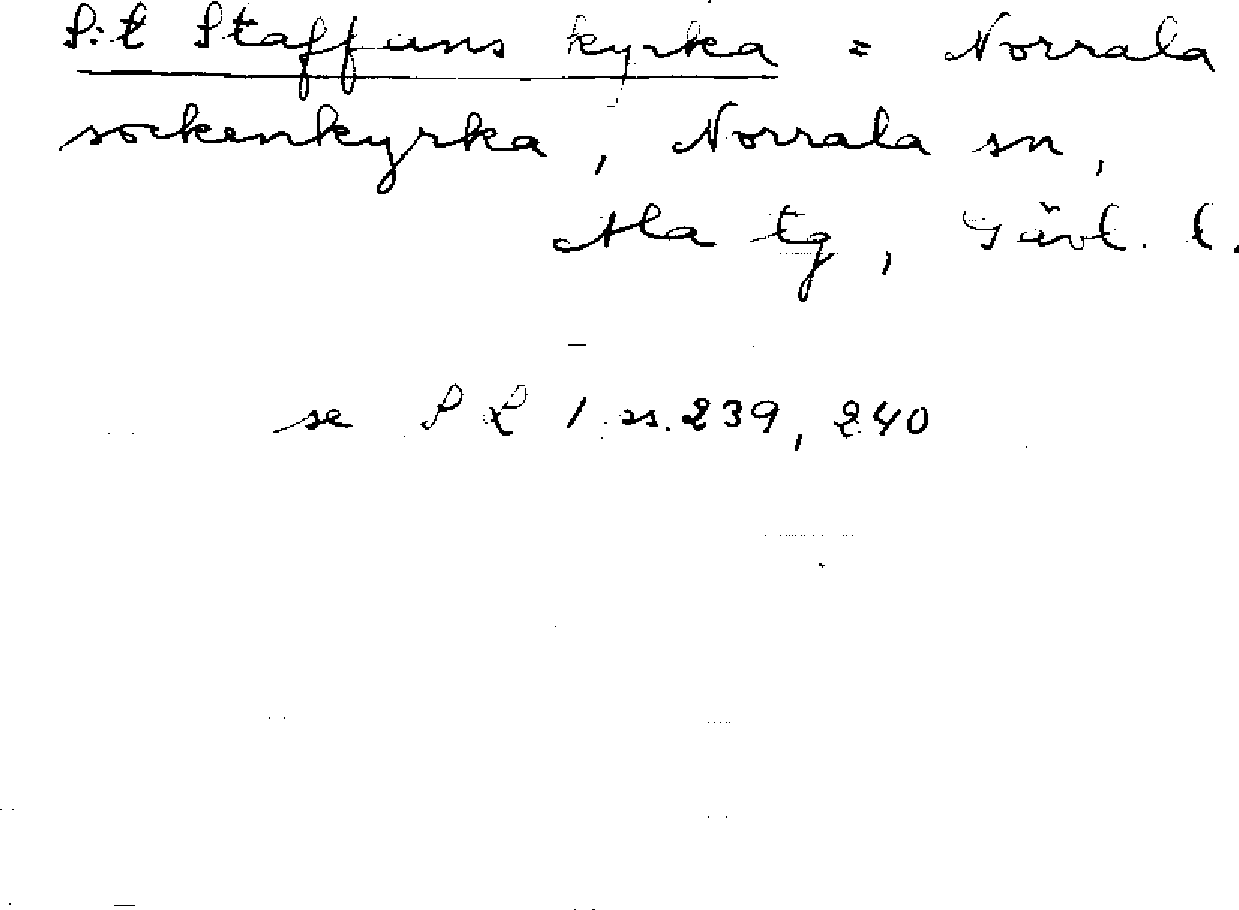 S:t Staffans kyrka = Norrala
sockenkyrka, Norrala sn,
Ala tg, Gävl. l.
se S L 1 ss. 239, 240